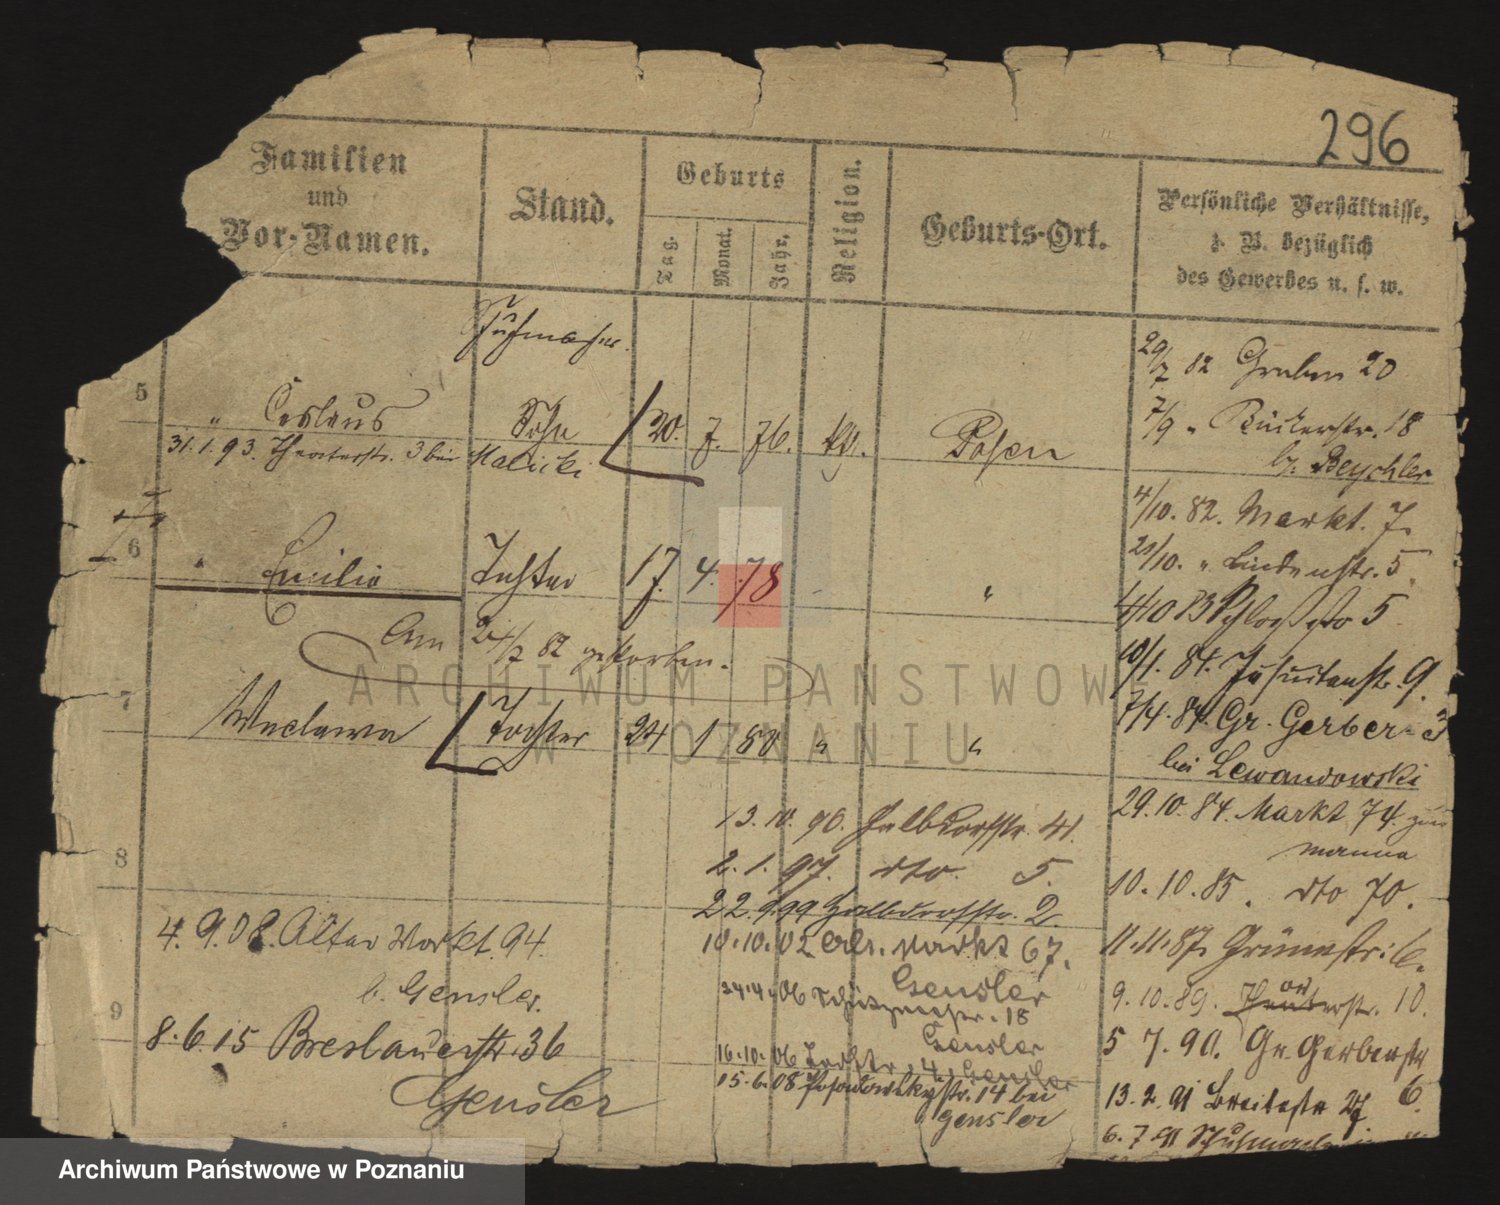 296
Familien
und
Vor-Namen.
Stand.
Geburts
Tag.
Monat.
Jahr.
Religion.
Geburts-Ort.
Persönliche Verhältnisse,
z. B. bezüglich
des Gewerbes u. s. w.
Schuhmacher
29/7 82 Graben 20
5
" Ceslaus Sohn 20. 7. 76. Posen
7/9 " 18
31.1.93. Theaterstr. 3 bei Malicki
b. Beychler
4/10. 82. Markt. 7.
6
" Emilie Tochter 17. 4. 78 "
/10. " Lindenstr. 5.
Am 24/7 82 gestorben.
5
10/1. 84. Jesuitenstr. 9.
7
Waclawa Tochter 24 1 80 " "
7/4. 84. Gr. Gerber- 3
bei Lewandowski
13. 10. 96. Halbdorfstr. 41.
29. 10. 84. Markt 74.
2. 1. 97. dto. 5.
8
10. 10. 85. dto 70.
22.9.99 Halbdorfstr. 2.
4. 9. 08. Alter Markt. 94.
b. Gensler.
10.10.02 Alt. Markt 67.
Gensler
11.11.87. Grünestr. 6.
24.4.06 Schützenstr. 18
Gensler
9. 10. 89. 10.
9
8. 6. 15 Breslauerstr. 36
Gensler
5 7. 90. Gr. Gerberstr
6.
16.10.06 4. Gensler
15.6.08 14 bei
Gensler
13. 2. 91 Breitestr 27
6. 7. 91
ARCHIWUM PAŃSTWOW
W POZNANIU
Archiwum Państwowe w Poznaniu